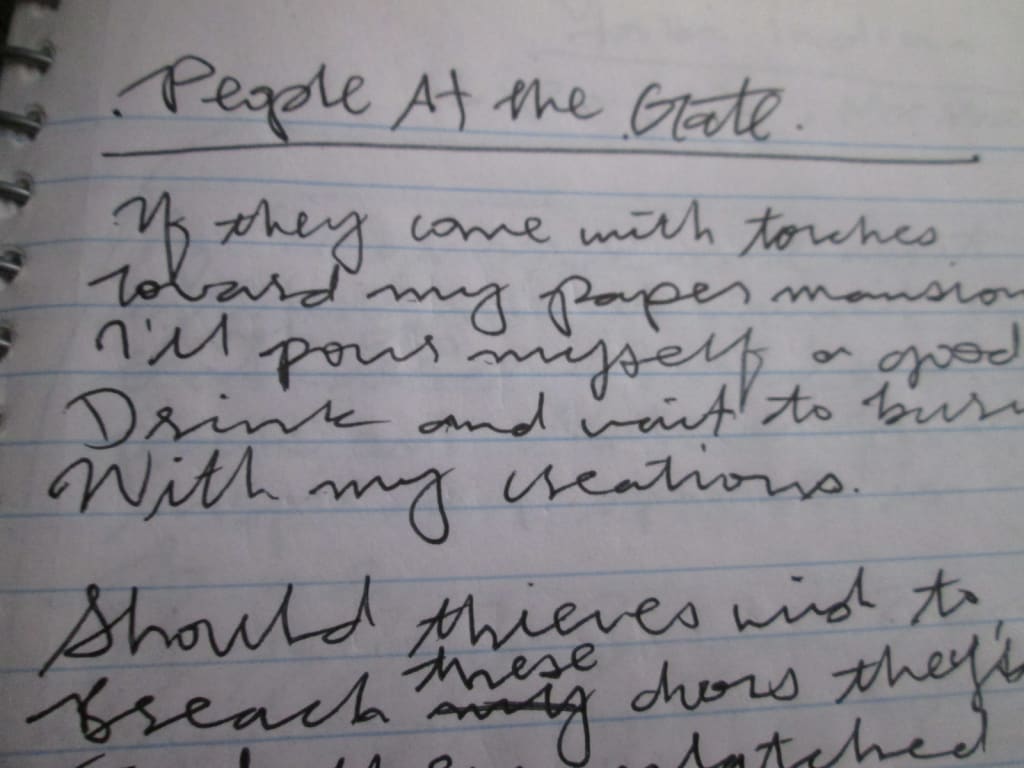 People At the Gate.
If they come with torches
toward my paper mansion
I'll pour myself a good
Drink and wait to burn
With my creations.
Should thieves wish to
Breach these my doors they'd
latched